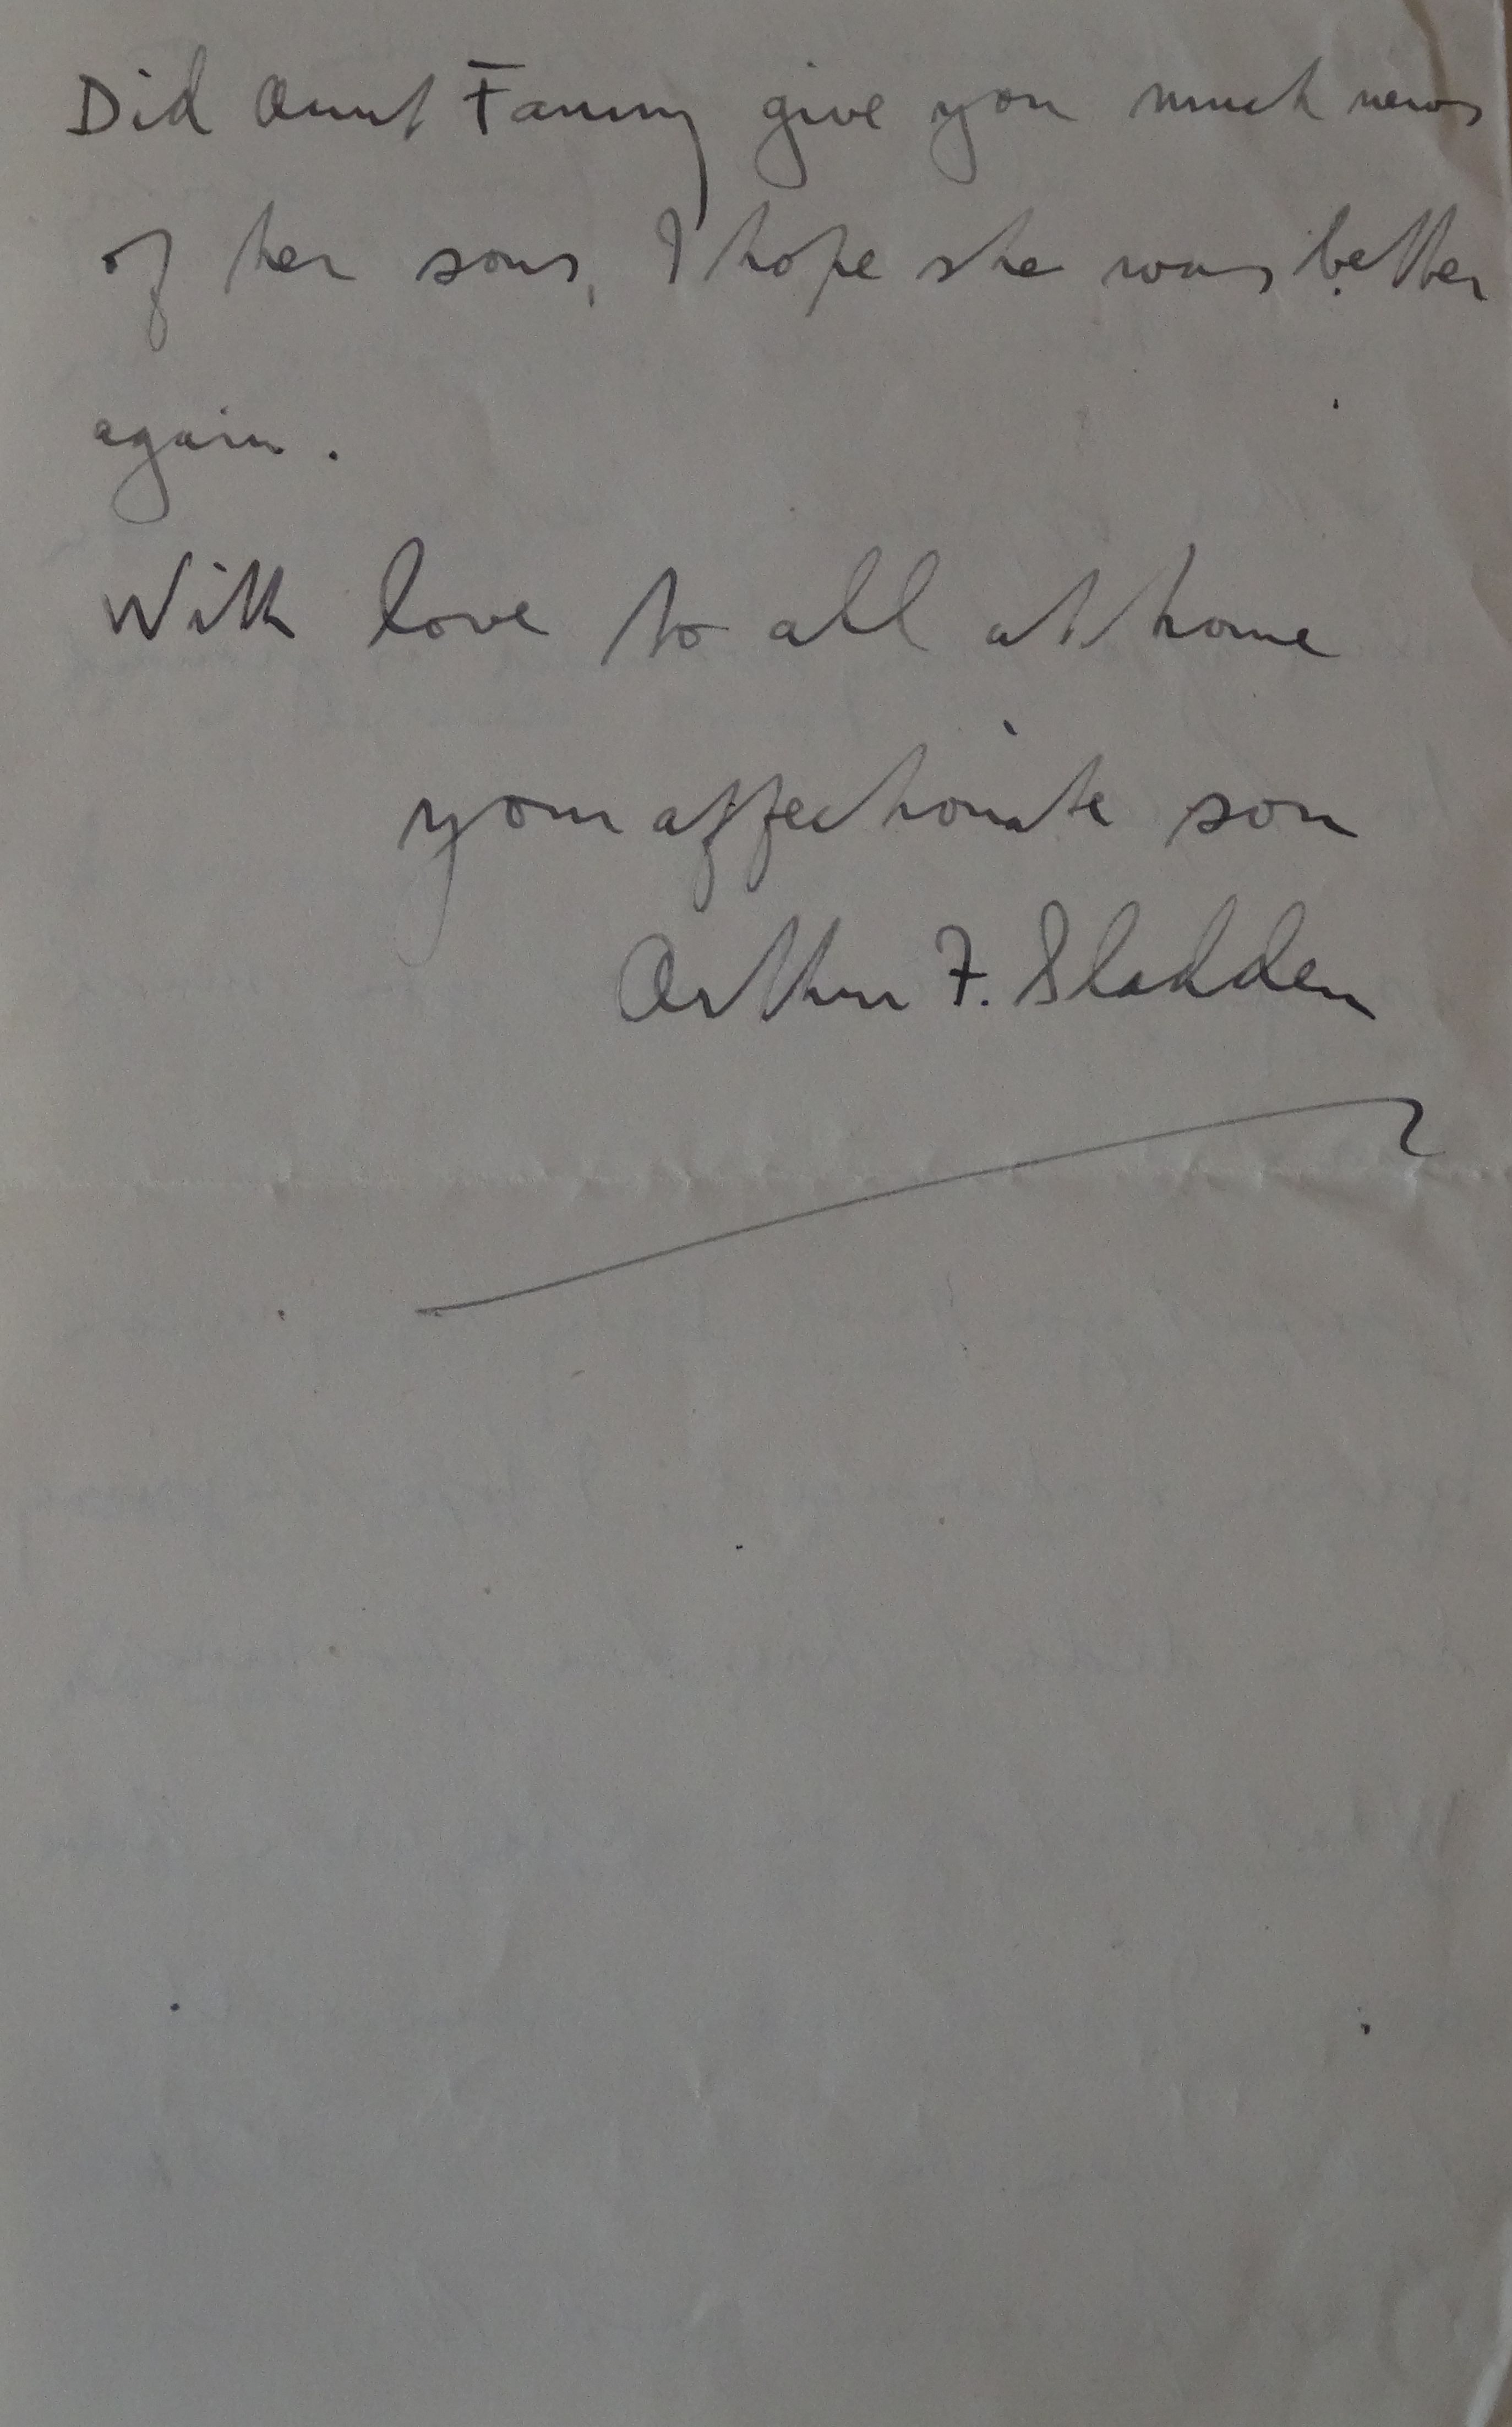 Did Aunt Fanny give you much news
of her sons, I hope she was better
again.
With love to all at home
your affectionate son
Arthur F. Sladden